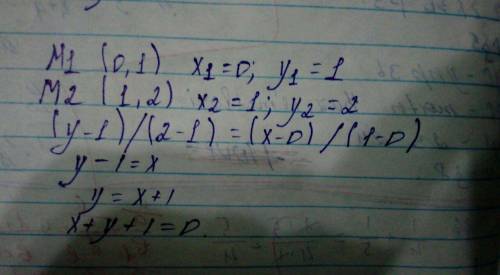 M1 (0,1) x1=0; y1=1
M2 (1,2) x2=1; y2=2
(y-1)/(2-1)=(x-0)/(1-0)
y-1=x
y=x+1
x+y+1=0.